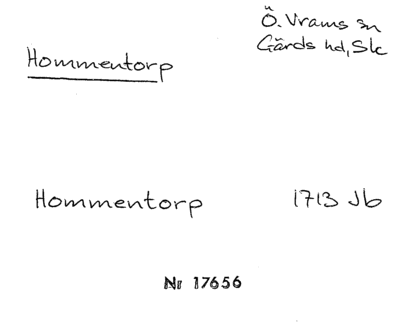 Ö. Vrams sn
Gärds hd, Sk
Hommentorp
Hommentorp 1713 Jb
Nr 17656